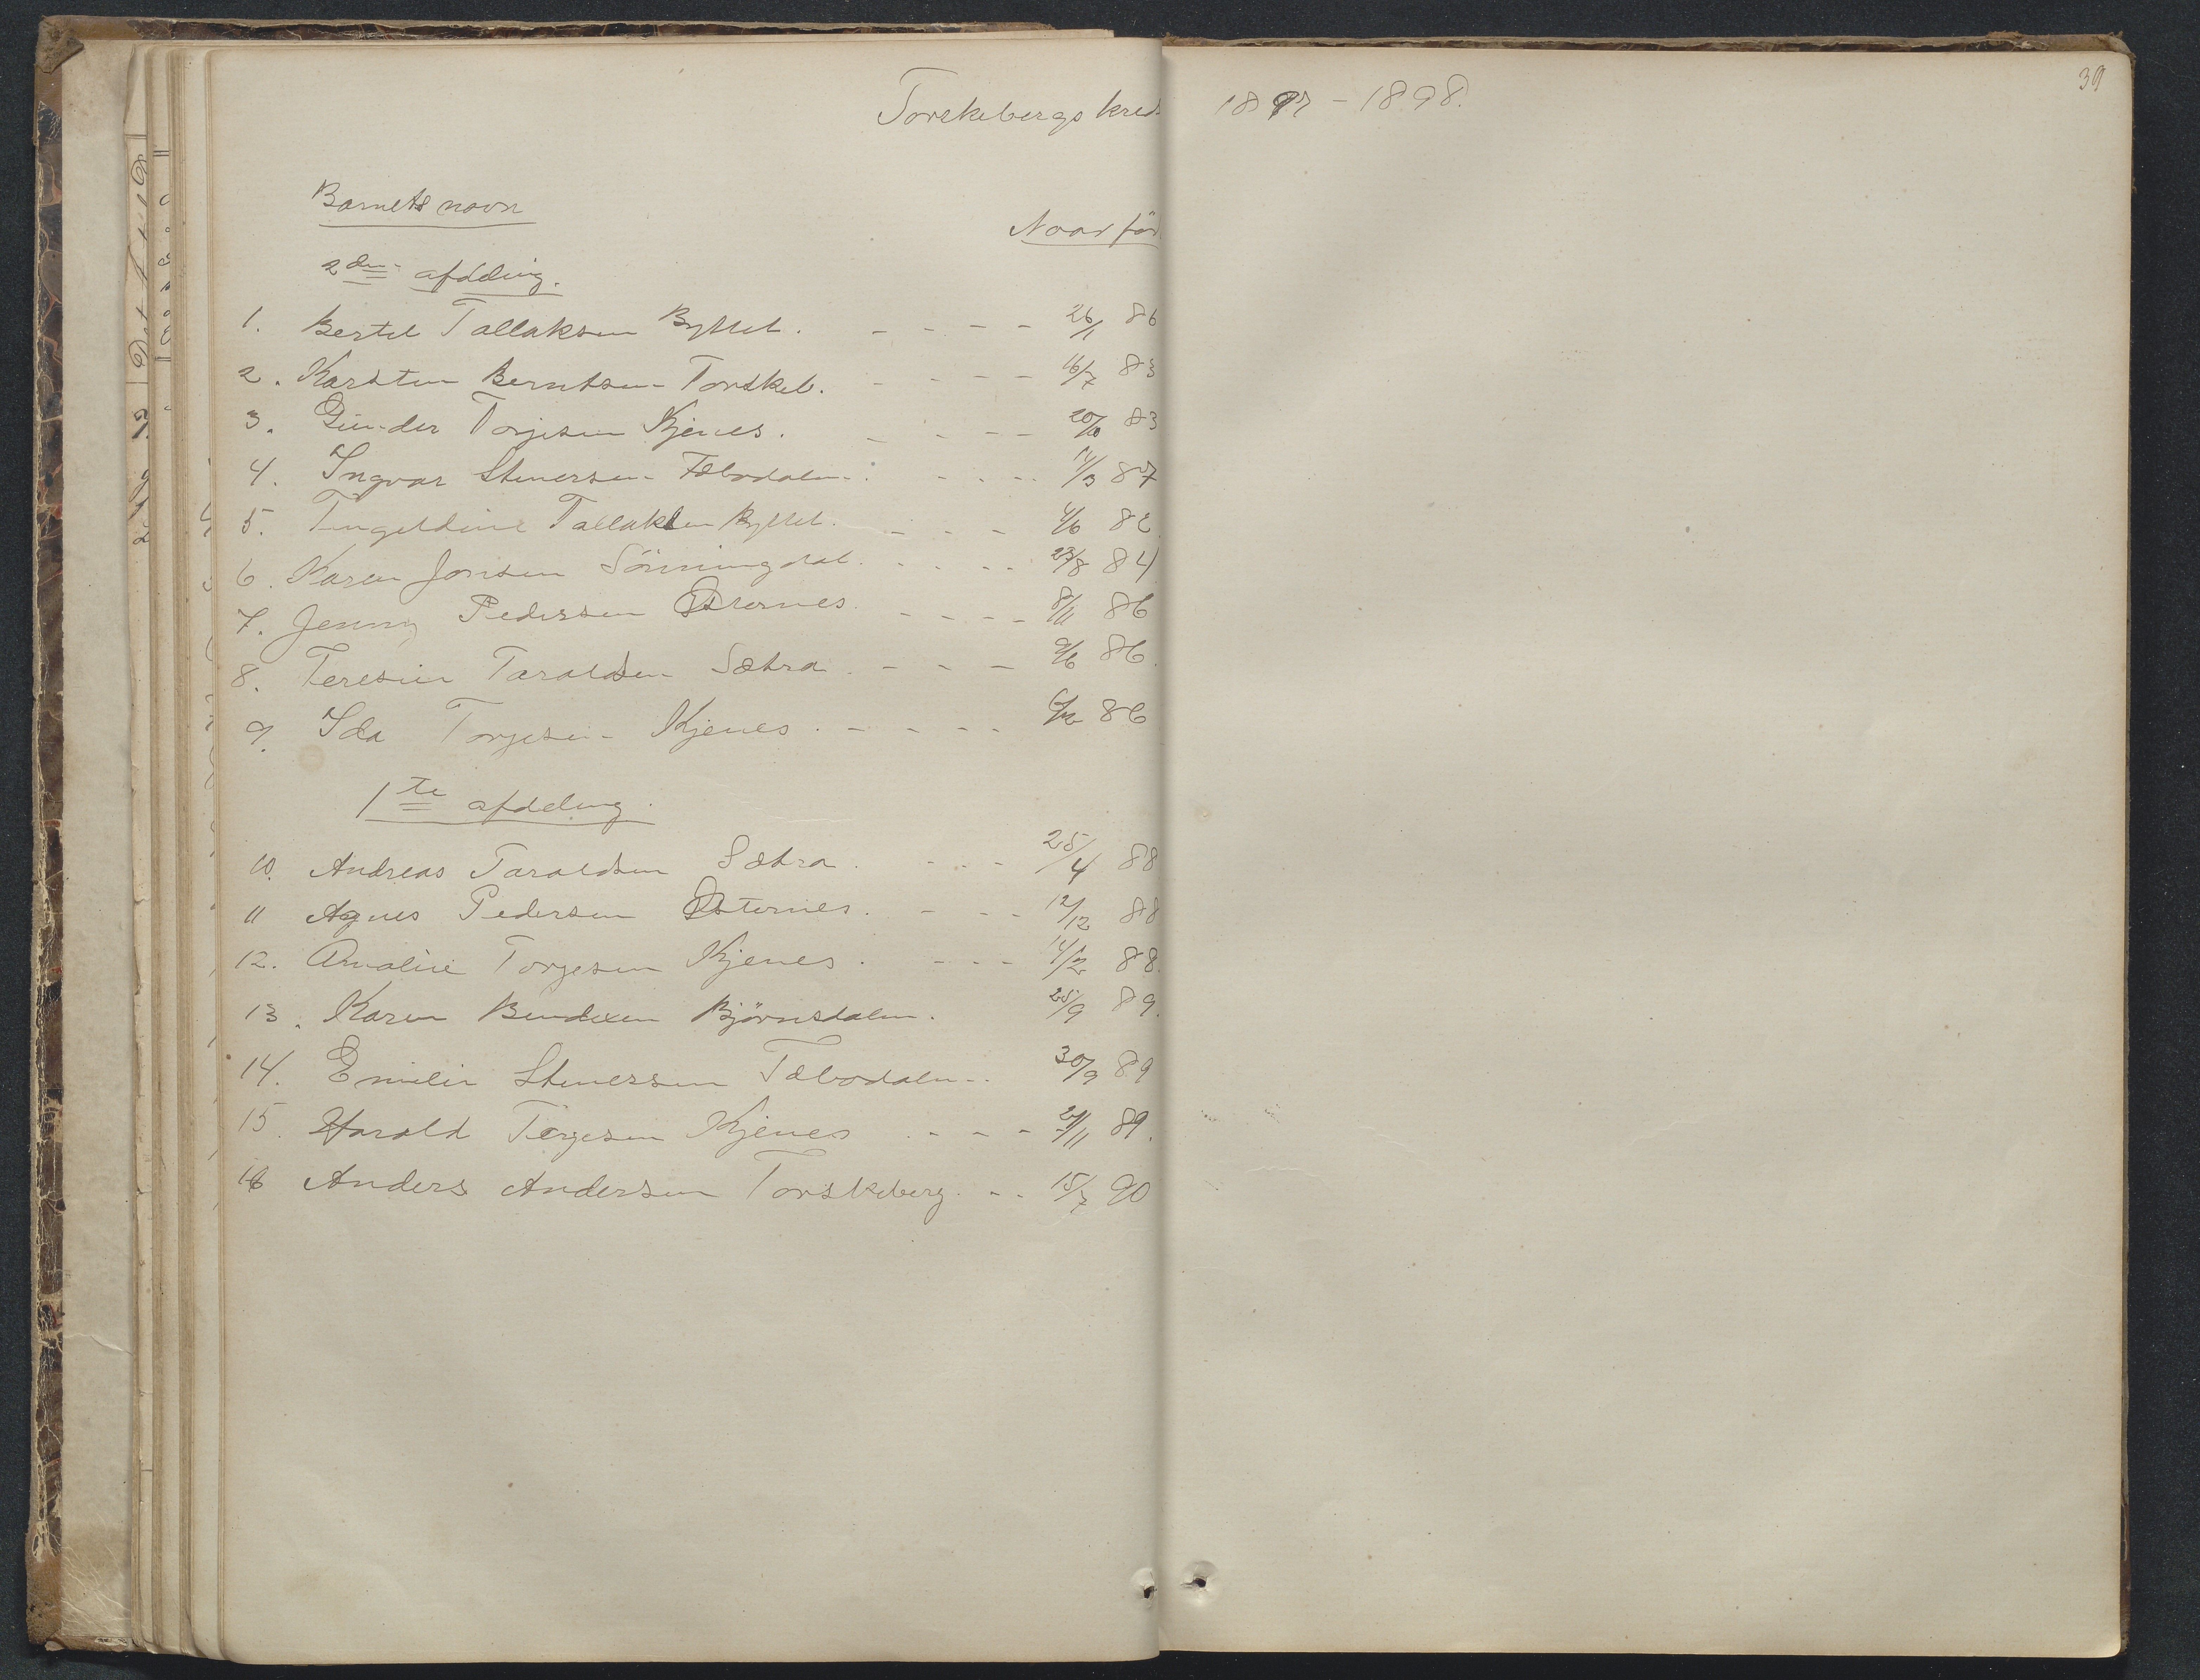 Torskebergs kreds 1897 - 1898.
39
Barnets navn
Naar föd
2den afdeling.
1. Bertel Tallaksen Byttel. - - - - 26/1 86
2. Karsten Berntsen Torskeb. - - - - 16/7 83
3. Gunder Torjesen Kjenes. - - - - 20/10 83
4. Ingvar Stenersen Fæbodalen. - - - - 14/3 87
5. Tallaksen Byttel. - - - 4/6 82
6. Karen Jonsen Sönningdal. - - - - 23/8 84
7. Jenny Pedersen Østernes. - - - - 8/11 86
8. Teresie Taraldsen Sætra. - - - 9/6 86.
9. Ida Torjesen Kjenes. - - - - 6/12 86
1te afdeling.
10. Andreas Taraldsen Sætra. - - - 25/4 88
11 Agnes Pedersen Østernes. - - - 12/12 88
12. Amalie Torjesen Kjenes. - - - 14/2 88.
13. Karen Bendixen Björnsdalen. 25/9 89.
14. Emilie Stenersen Fæbodalen. 30/9 89
15. Harald Torjesen Kjenes. - - - 21/11 89.
16 Anders Andersen Torskeberg. - - 15/7 90